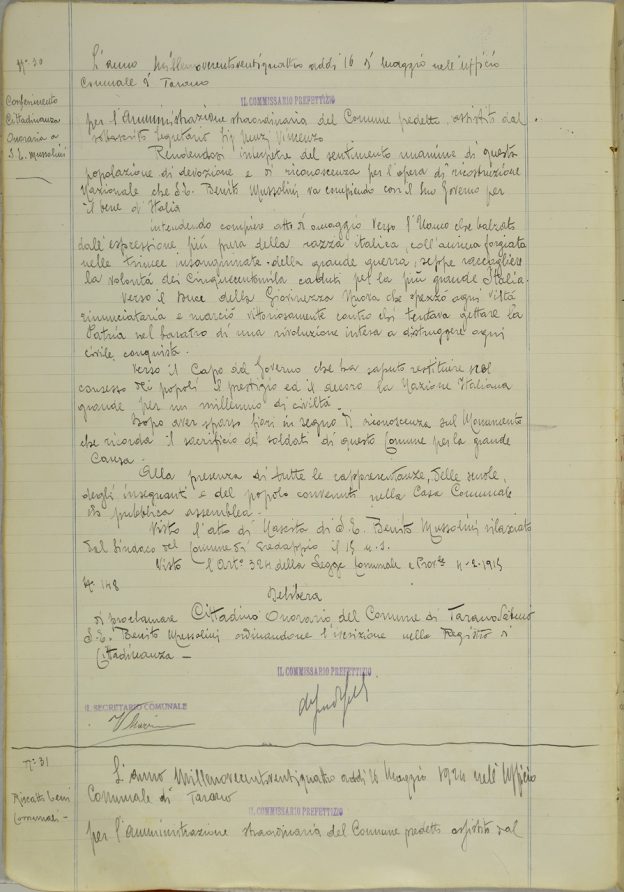 N° 30
Conferimento
Cittadinanza
Onoraria a
S. E. Mussolini
L'anno Millenovecentoventiquattro addì 16 di Maggio nell'Ufficio
Comunale di Tarano
IL COMMISSARIO PREFETTIZIO
per l'Amministrazione straordinaria del Comune predetto assistito dal
sottoscritto Segretario Sig. Vincenzo
Rendendosi interpetre del sentimento unanime di questa
popolazione di devozione e di riconoscenza per l'opera di ricostruzione
Nazionale che S. E. Benito Mussolini va compiendo con il suo Governo per
il bene d'Italia
intendendo compiere atto di omaggio verso l'Uomo che balzato
dall'espressione più pura della razza italica, coll'anima forgiata
nelle trincee insanguinate della grande guerra, seppe raccogliere
la volontà dei Cinquecentomila caduti per la più grande Italia.
Verso il Duce della Giovinezza Nuova che spezzò ogni viltà
rinunciataria e marciò vittoriosamente contro chi tentava gettare la
Patria nel baratro di una rivoluzione intesa a distruggere ogni
civile conquista.
Verso il Capo del Governo che ha saputo restituire nel
consesso dei popoli il prestigio ed il decoro la Nazione Italiana
grande per un millennio di civiltà.
Dopo aver sparso fiori in segno di riconoscenza sul Monumento
che ricorda il sacrificio dei soldati di questo Comune per la grande
Causa.
Alla presenza di tutte le rappresentanze, delle scuole,
degli insegnanti e del popolo convenuti nella Casa Comunale
in pubblica assemblea.
Visto l'atto di Nascita di S. E. Benito Mussolini rilasciato
dal Sindaco del Comune di Predappio il 15 u. s.
Visto l'Art° 324 della Legge Comunale e Prov.le 4-2-1915
N° 148
Delibera
di proclamare Cittadino Onorario del Comune di Tarano Sabino
S. E. Benito Mussolini ordinandone l'iscrizione nello Registro di
Cittadinanza —
IL COMMISSARIO PREFETTIZIO
IL SEGRETARIO COMUNALE
N° 31
Riscatto beni
Comunali –
L'Anno Millenovecentoventiquattro addì Maggio 1924 nell'Ufficio
Comunale di Tarano
IL COMMISSARIO PREFETTIZIO
per l'Amministrazione straordinaria del Comune predetto assistito dal